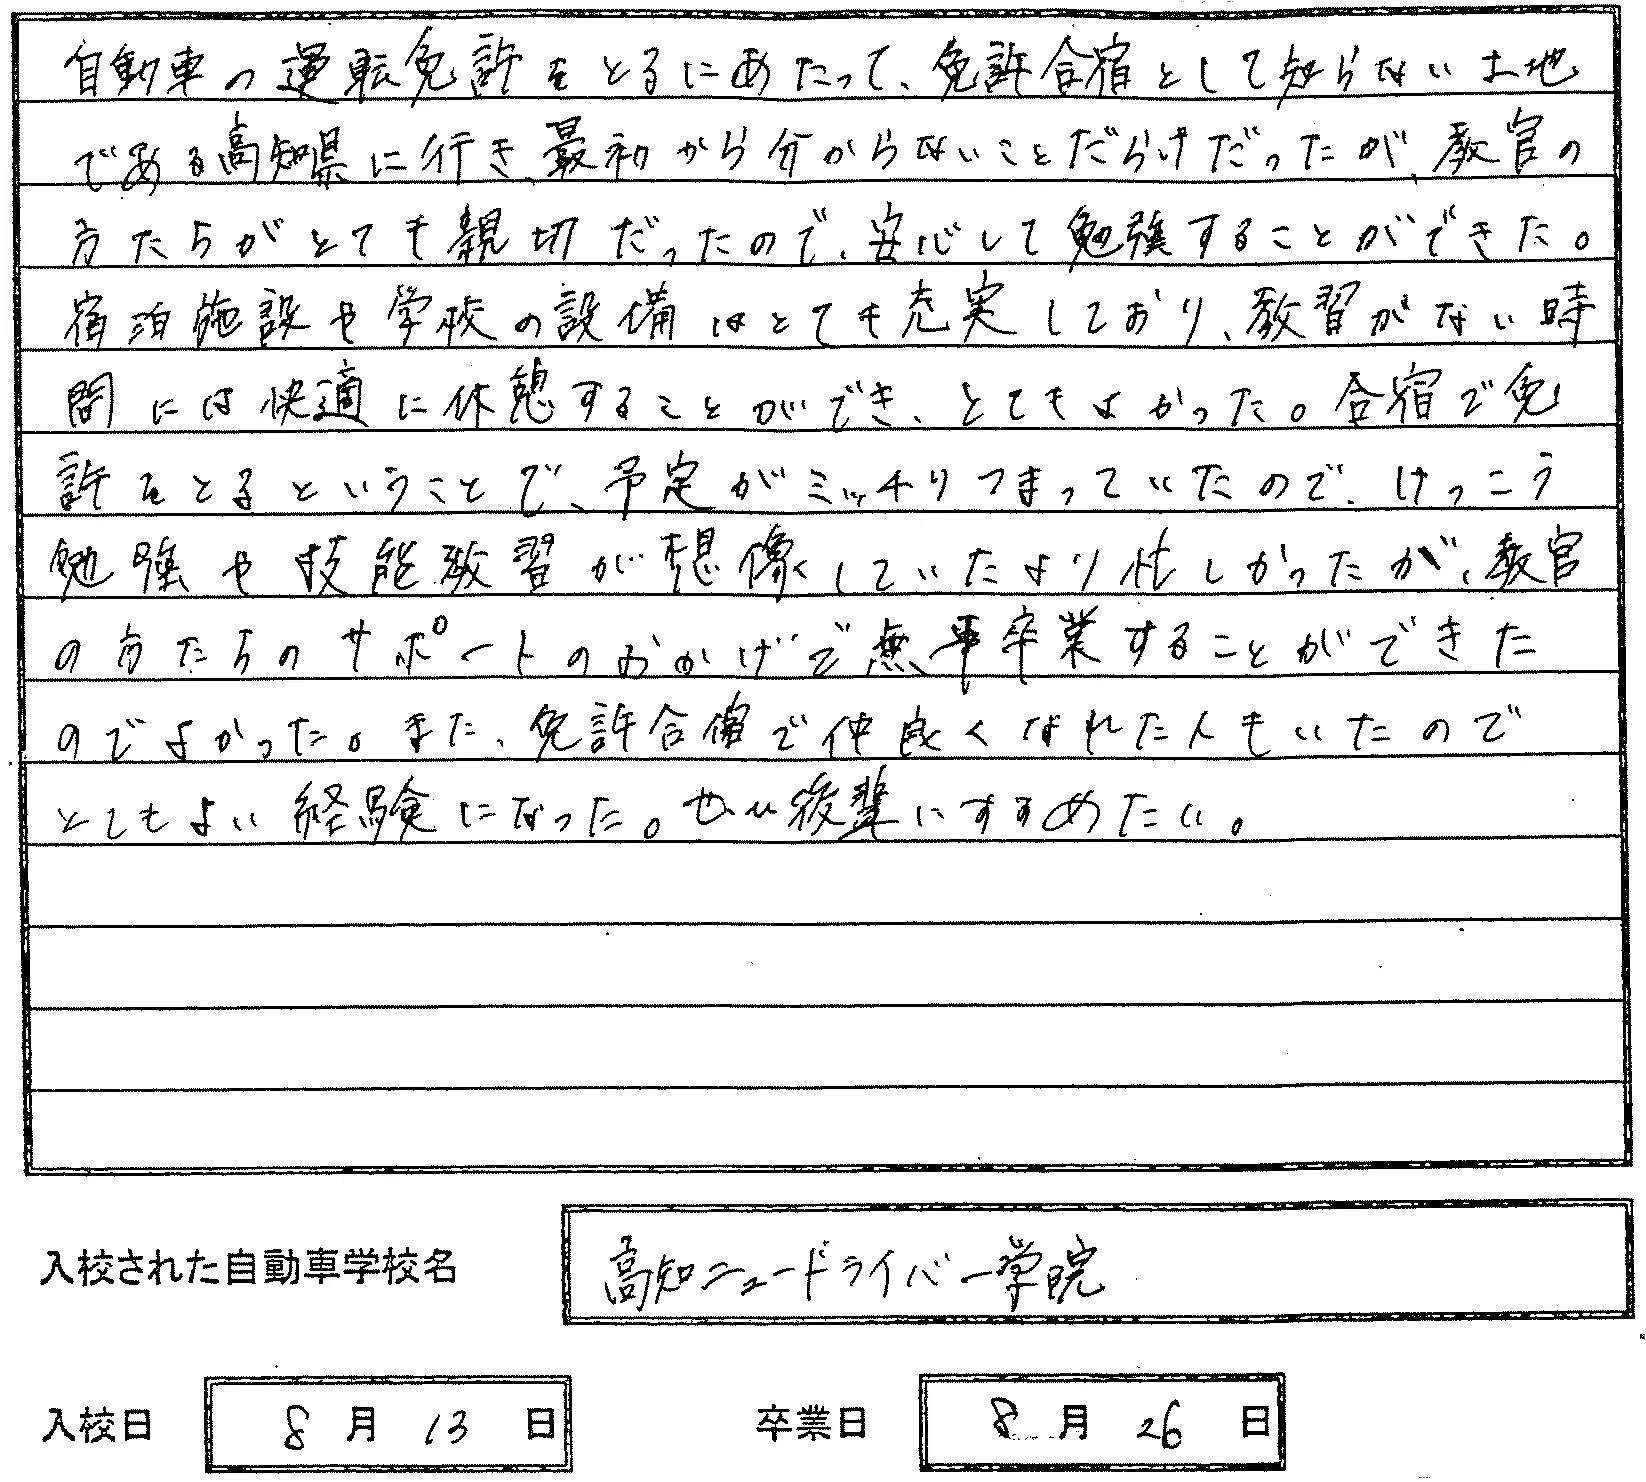 自動車の運転免許をとるにあたって、免許合宿として知らない土地
である高知県に行き、最初から分からないことだらけだったが、教官の
方たちがとても親切だったので、安心して勉強することができた。
宿泊施設や学校の設備はとても充実しており、教習がない時
間には快適に休憩することができ、とてもよかった。合宿で免
許をとるということで、予定がミッチリつまっていたので、けっこう
勉強や技能教習が想像していたより忙しかったが、教官
の方たちのサポートのおかげで無事卒業することができた
のでよかった。また、免許合宿で仲良くなれた人もいたので
とてもよい経験になった。ぜひ後輩にすすめたい。
入校された自動車学校名 高知ニュードライバー学院
入校日 8月13日 卒業日 8月26日